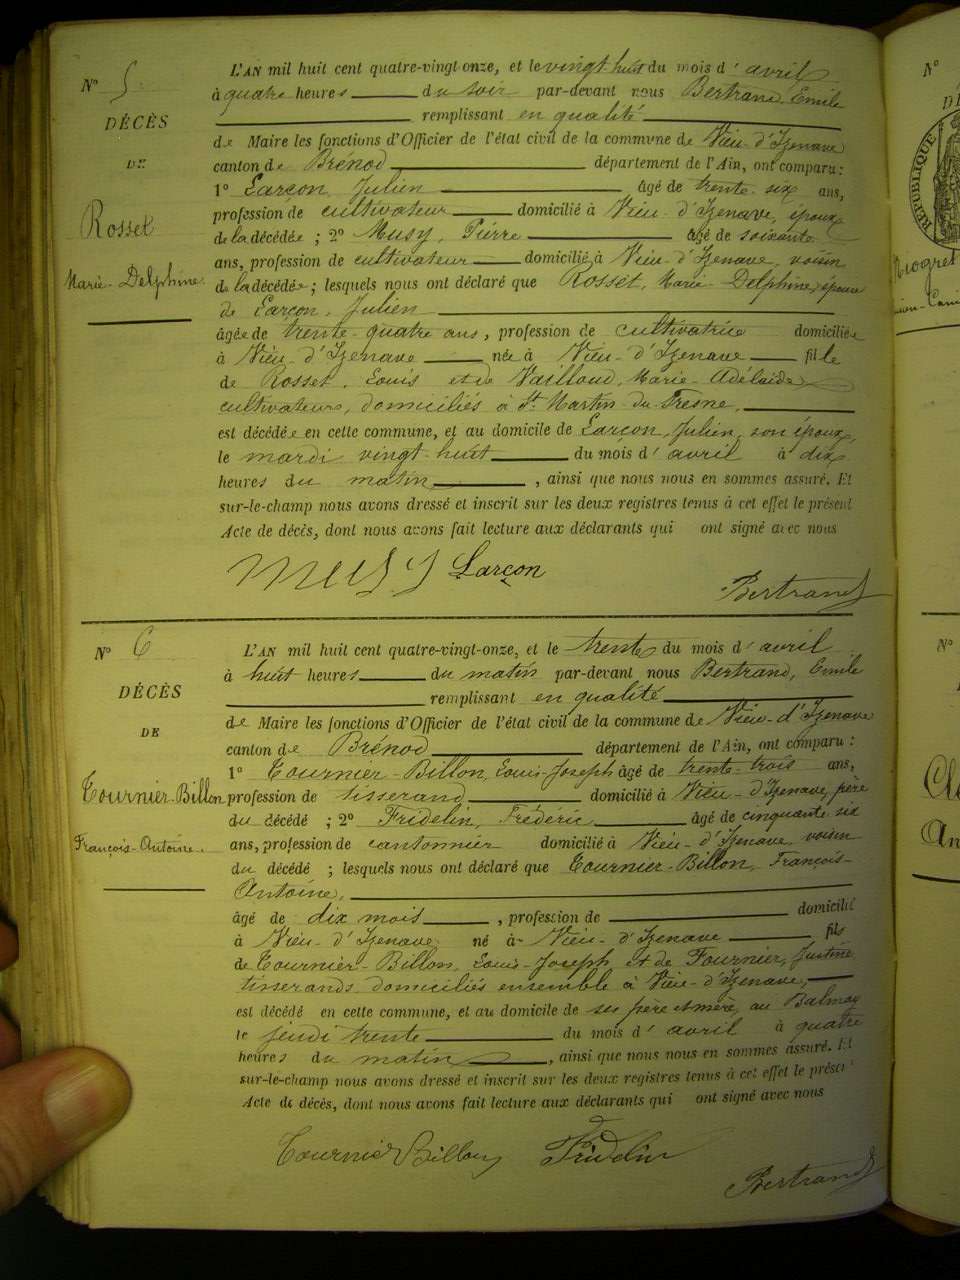 N° 5
DÉCÈS
DE
Rosset
Marie-Delphine
L'AN mil huit cent quatre-vingt-onze, et le vingt-huit du mois d'avril
à quatre heures du soir par-devant nous Bertrand, Emile
remplissant en qualité
de Maire les fonctions d'Officier de l'état civil de la commune de Vieu-d'Izenave
canton de Brénod département de l'Ain, ont comparu :
1° Larçon, Julien âgé de trente-six ans,
profession de cultivateur domicilié à Vieu-d'Izenave, époux
de la décédée ; 2° Musy, Pierre âgé de soixante
ans, profession de cultivateur domicilié à Vieu-d'Izenave, voisin
de la décédée ; lesquels nous ont déclaré que Rosset, Marie-Delphine, épouse
de Larçon, Julien
âgée de trente-quatre ans, profession de cultivatrice domiciliée
à Vieu-d'Izenave née à Vieu-d'Izenave fille
de Rosset, Louis et de Vailloud, Marie-Adélaïde,
cultivateurs, domiciliés à St Martin-du-Fresne,
est décédée en cette commune, et au domicile de Larçon, Julien, son époux,
le mardi vingt-huit du mois d'avril à dix
heures du matin, ainsi que nous nous en sommes assuré. Et
sur-le-champ nous avons dressé et inscrit sur les deux registres tenus à cet effet le présent
Acte de décès, dont nous avons fait lecture aux déclarants qui ont signé avec nous
Musy Larçon
Bertrand
N° 6
DÉCÈS
DE
Tournier-Billon
François-Antoine.
L'AN mil huit cent quatre-vingt-onze, et le trente du mois d'avril
à huit heures du matin par-devant nous Bertrand, Emile
remplissant en qualité
de Maire les fonctions d'Officier de l'état civil de la commune de Vieu-d'Izenave
canton de Brénod département de l'Ain, ont comparu :
1° Tournier-Billon, Louis-Joseph âgé de trente-trois ans,
profession de tisserand domicilié à Vieu-d'Izenave, père
du décédé ; 2° Fridelin, Frédéric âgé de cinquante-six
ans, profession de cantonnier domicilié à Vieu-d'Izenave, voisin
du décédé ; lesquels nous ont déclaré que Tournier-Billon, François-
Antoine,
âgé de dix mois, profession de domicilié
à Vieu-d'Izenave né à Vieu-d'Izenave fils
de Tournier-Billon, Louis-Joseph et de Fournier, Justine
tisserands, domiciliés ensemble à Vieu-d'Izenave,
est décédé en cette commune, et au domicile de ses père et mère, au Balmay
le jeudi trente du mois d'avril à quatre
heures du matin, ainsi que nous nous en sommes assuré. Et
sur-le-champ nous avons dressé et inscrit sur les deux registres tenus à cet effet le présent
Acte de décès, dont nous avons fait lecture aux déclarants qui ont signé avec nous
Tournier Billon Fridelin
Bertrand
N°
DÉ
RÉPUBLIQUE
N°
Cl
An